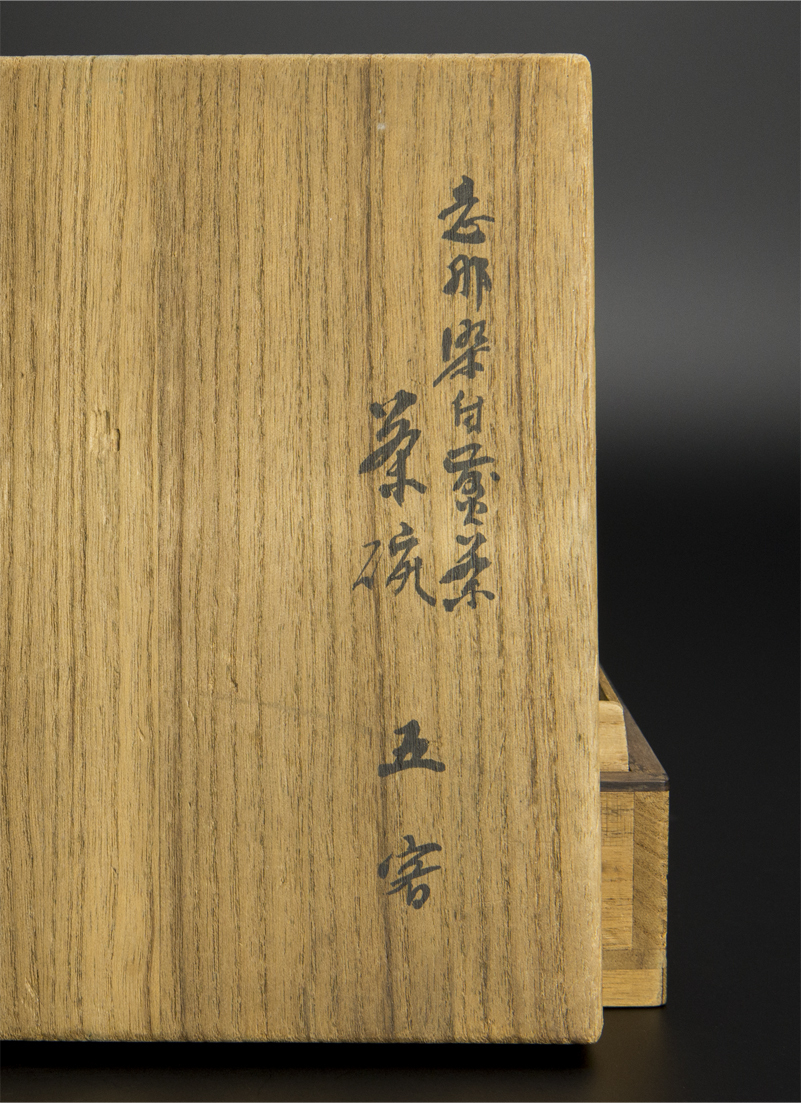 支那染付煎茶
茶碗 五客